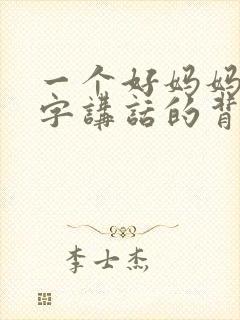 一个好妈妈
字講話的背
李士杰